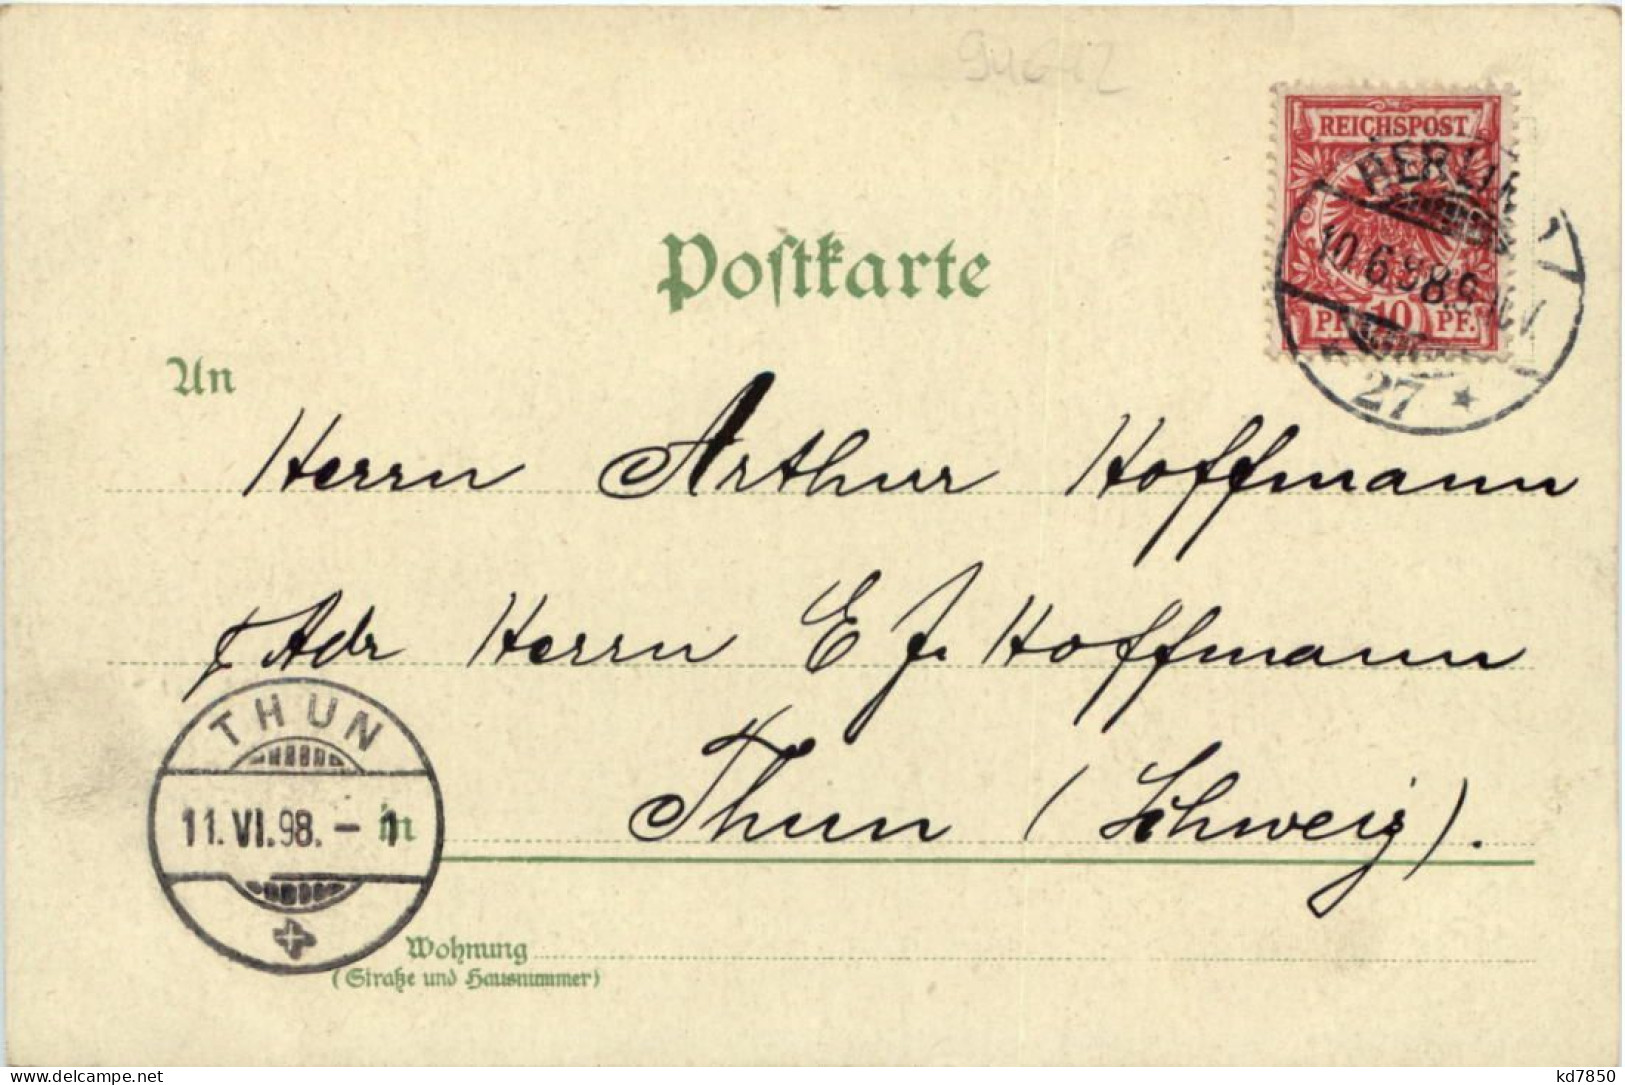 94642
REICHSPOST
BERLIN
10.6.98.
PF. 10 PF.
27 *
Postkarte
An
Herrn Arthur Hoffmann
p Adr Herrn E J. Hoffmann
THUN
Thun (Schweiz).
11.VI.98. - 1
in
Wohnung
(Straße und Hausnummer)
delcampe.net
kd7850